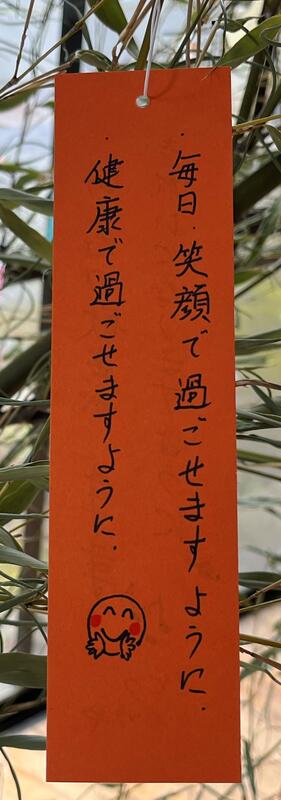 ・毎日、笑顔で過ごせますように.
・健康で過ごせますように.